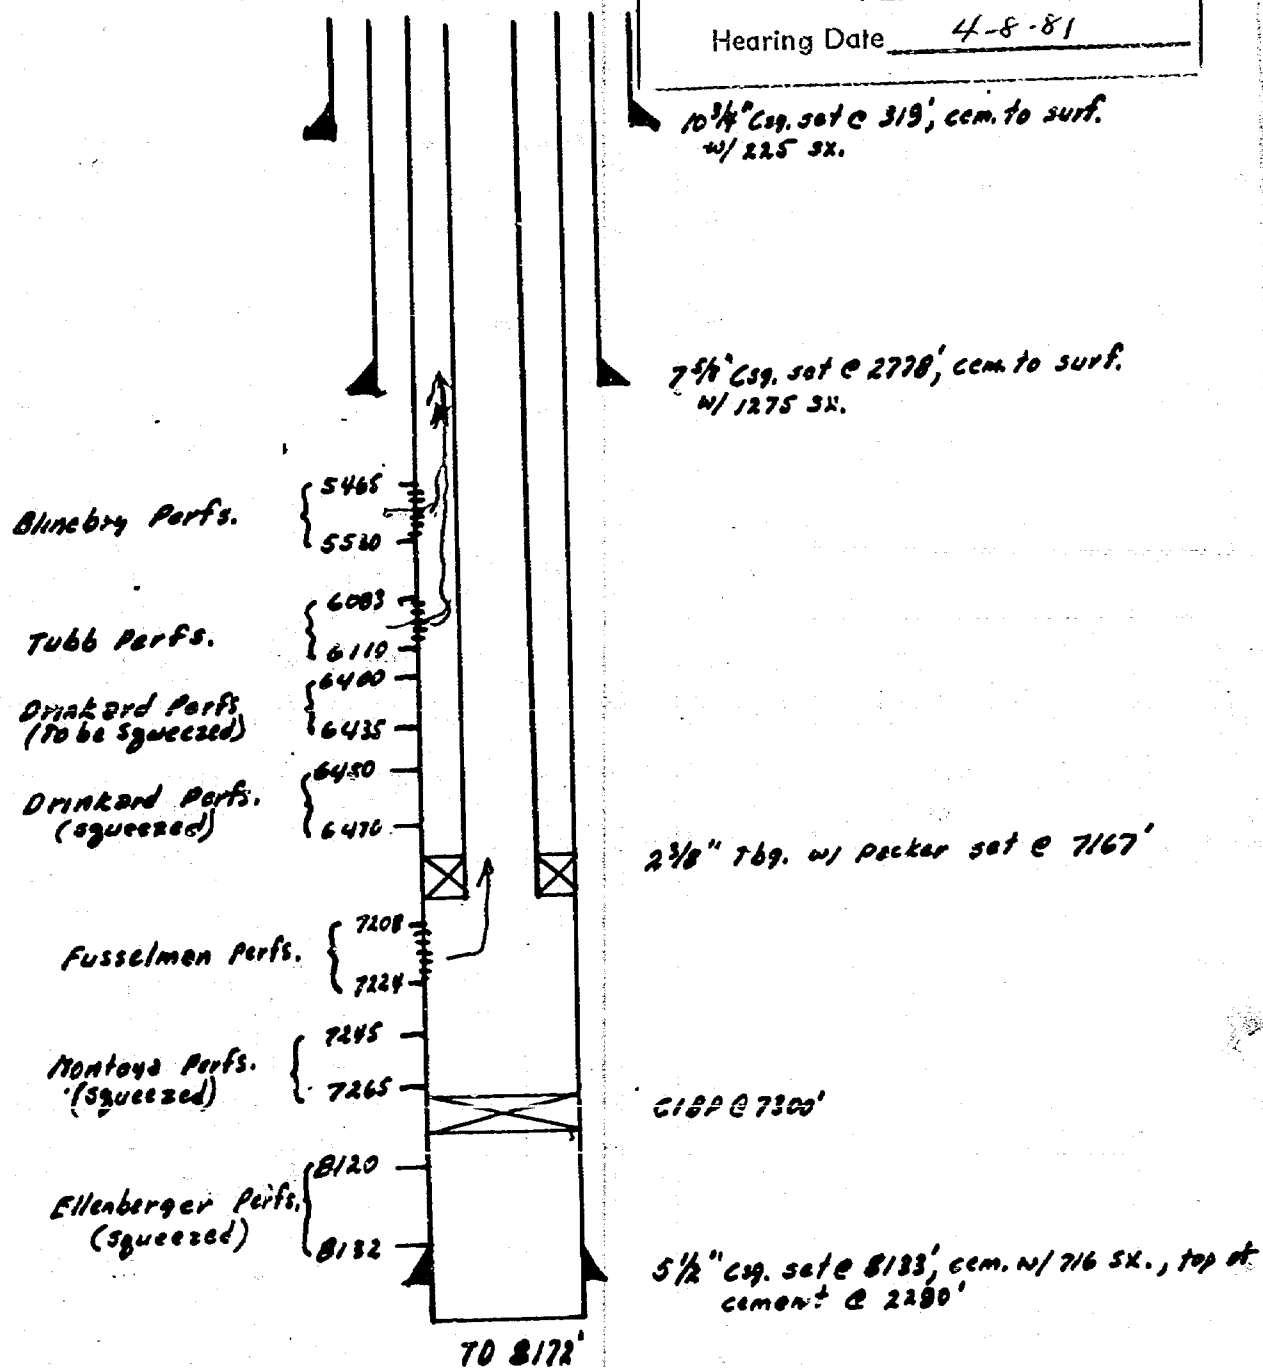 Hearing Date 4-8-81
10 3/4" Csg. set @ 319', cem. to surf.
w/ 225 sx.
7 5/8" Csg. set @ 2778', cem. to surf.
w/ 1275 sx.
Blinebry Perfs.
5465
5530
Tubb Perfs.
6083
6110
Drinkard Perfs
(To be squeezed)
6400
6435
Drinkard Perfs.
(squeezed)
6450
6470
2 3/8" Tbg. w/ packer set @ 7167'
Fusselman Perfs.
7208
7224
Montoya Perfs.
(squeezed)
7245
7265
CIBP @ 7300'
Ellenberger Perfs.
(squeezed)
8120
8132
5 1/2" csg. set @ 8133', cem. w/ 716 sx., top of
cement @ 2280'
TD 8172'